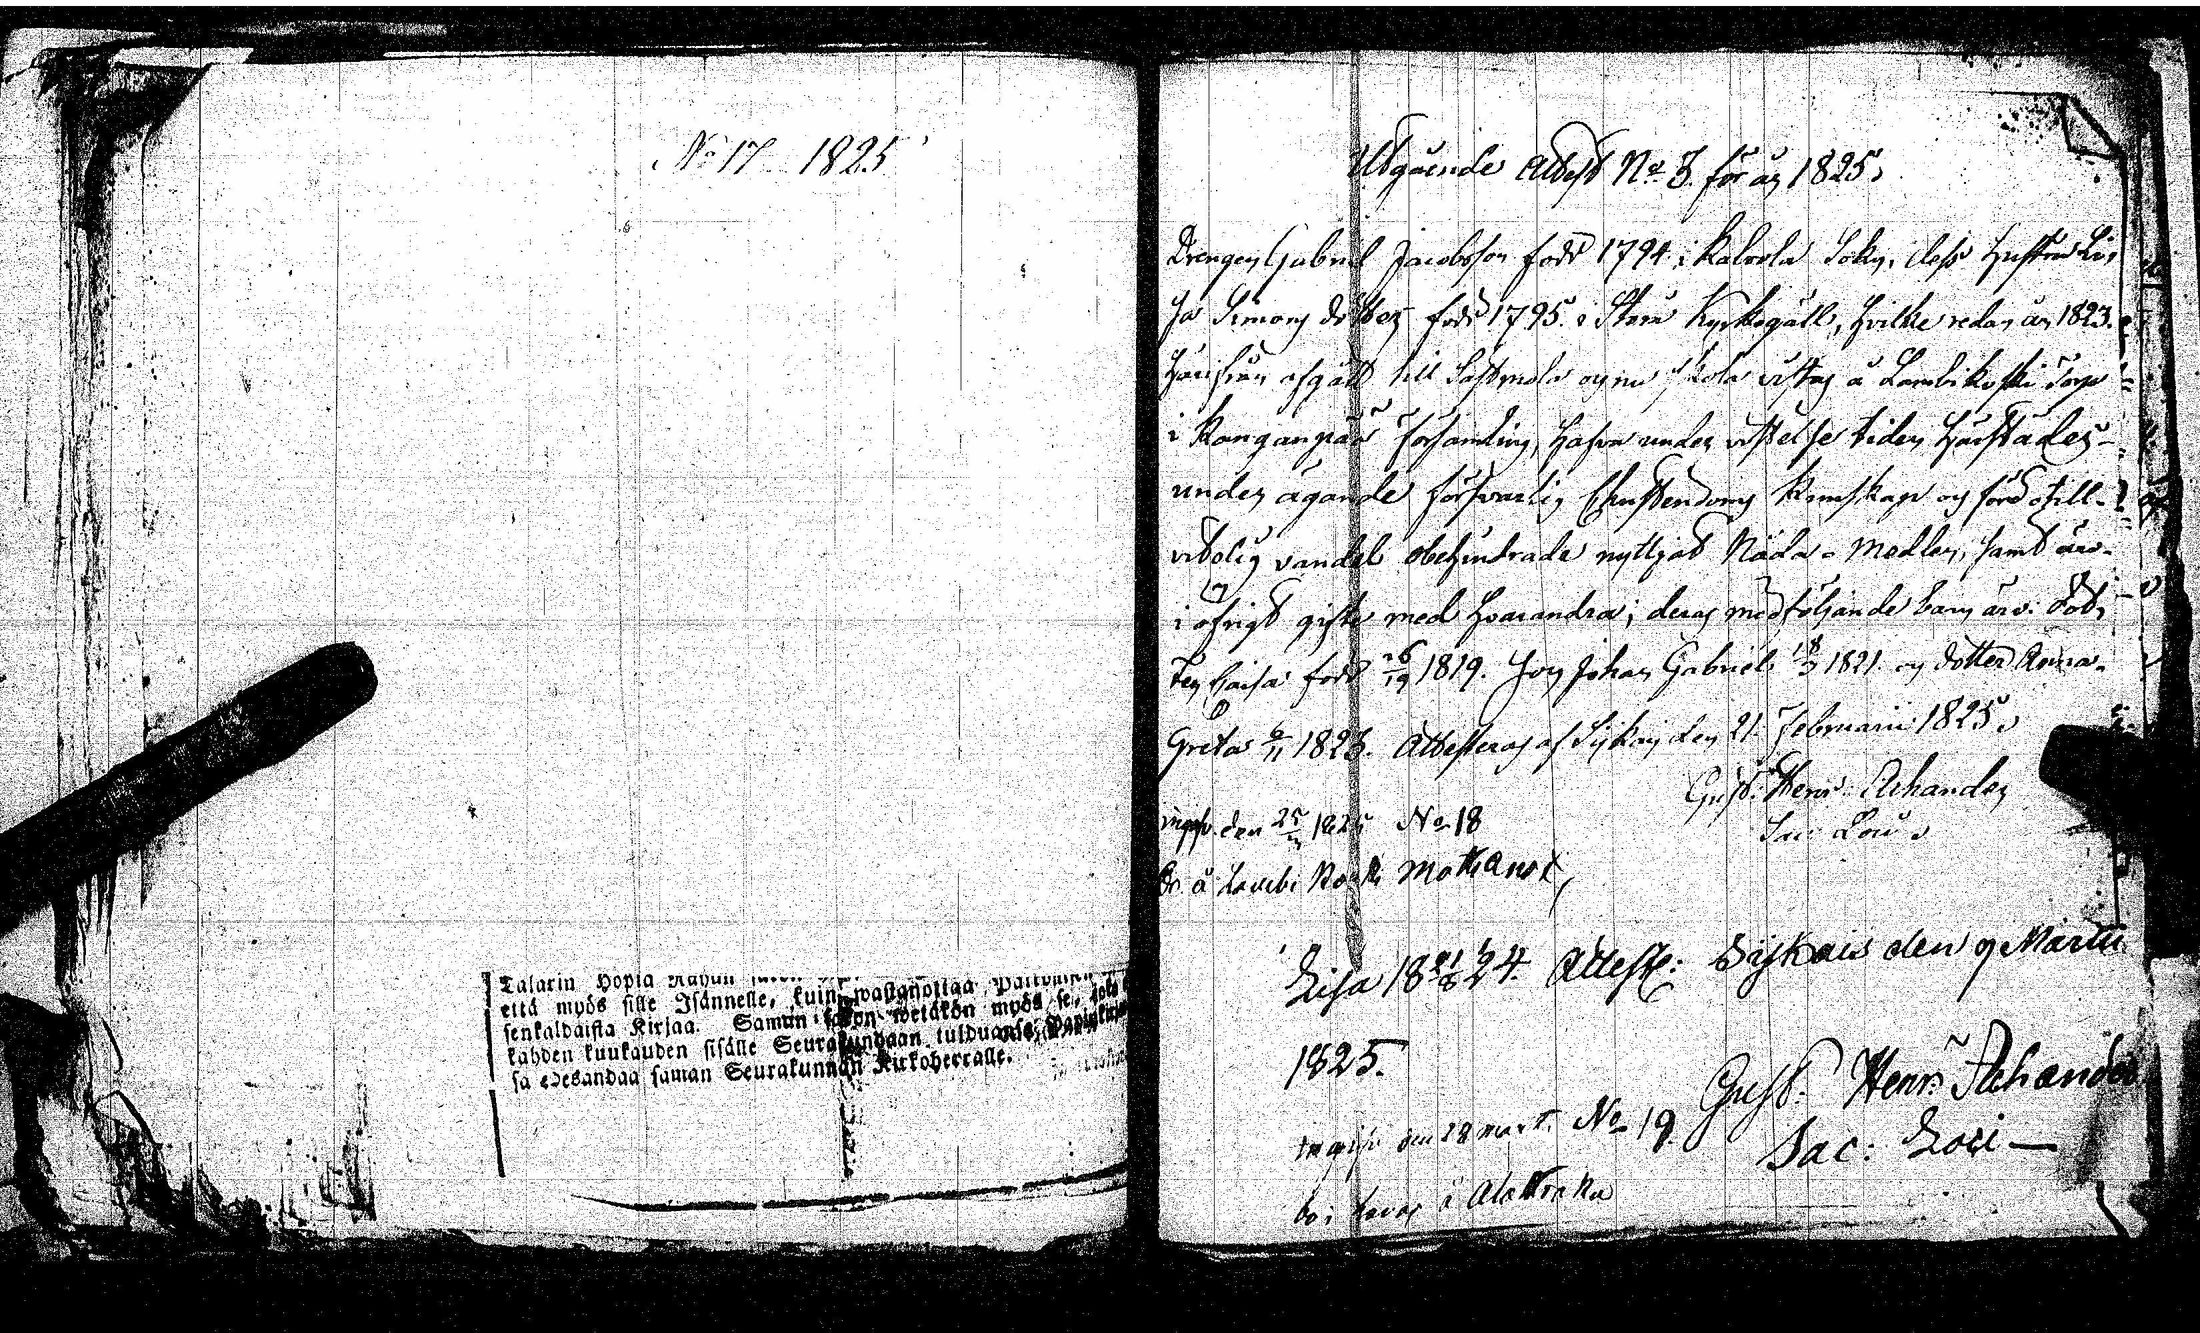 No 17 1825
Talarin Hopia Rahan
että myös sille Isännelle, kuin wastanottaa
senkaldaista Kirjaa. Saman myös se, joka
kahden kuukauden sisälle Seurakundaan tulduansa,
sa edesandaa saman Seurakunnan Kirkoherralle.
Utgående Attest No 3. för år 1825.
Drengen Gabriel Jacobsson född 1794 i Kalvola Sokn, dess hustru Li-
sa Simons dotter född 1795. i Stora Kyrkogäll, hvilke redan år 1823.
härifrån afgått till Sastmola och nu skola vistas å Lambikoski Torp
i Kangangsää församling, hafva under vistelse tiden härstädes
under ägande försvarlig Christendoms Kunskap och förd otill-
vitelig vandel obehindrade nyttjat Nåda-Medlen, samt äro
i öfrigt gifte med hvarandra; deras medföljande barn äro: Dot-
ter Caisa född 26/12 1819. Son Johan Gabriel 1821. och dotter Anna
Greta 6/11 1823. Attesteras af Sijkais den 21 Februarii 1825.
Gust. Henr. Achander
Sac: Loci
den 25 1825 No 18
å
Lisa 1824. Attest: Sijkais den 9 Martii
1825.
Gust. Henr. Achander
Sac: Loci
den 28 mart. No 19.
bo i å Alattraku